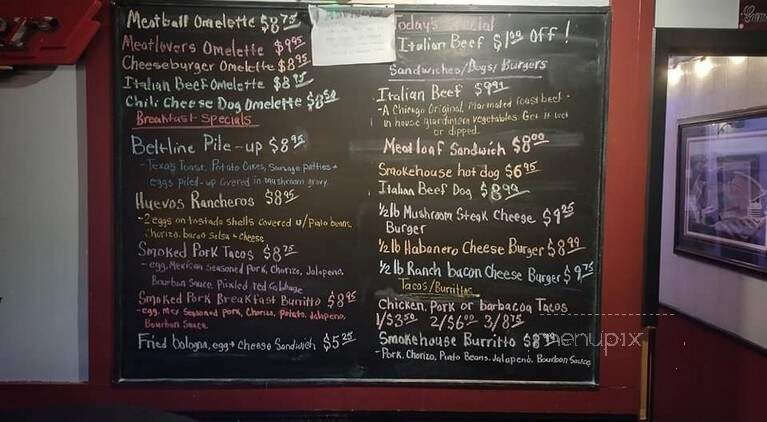 Meatball Omelette $8.75
Meatlovers Omelette $9.95
Cheeseburger Omelette $8.95
Italian Beef Omelette $8.95
Chili Cheese Dog Omelette $8.50
Breakfast Specials
Beltline Pile-up $8.95
-Texas Toast, Potato Cakes, Sausage patties +
eggs piled-up covered in mushroom gravy
Huevos Rancheros $8.95
-2 eggs on tostada shells covered w/ Pinto beans,
Chorizo, bacon Salsa + cheese
Smoked Pork Tacos $8.75
-egg, Mexican Seasoned Pork, Chorizo, Jalapeno,
Bourbon Sauce, Pickled red Cabbage
Smoked Pork Breakfast Burrito $8.95
-egg, Mex Seasoned pork, Chorizo, Potato, Jalapeno,
Bourbon Sauce
Fried bologna, egg + cheese Sandwich $5.25
Todays Special
Italian Beef $1.00 Off!
Sandwiches/Dogs/Burgers
Italian Beef $9.99
-A Chicago Original, Marinated roast beef -
in house giardiniera vegetables. Get it wet
or dipped.
Meatloaf Sandwich $8.00
Smokehouse hot dog $6.95
Italian Beef Dog $8.99
1/2 lb Mushroom Steak Cheese $9.25
Burger
1/2 lb Habanero Cheese Burger $8.99
1/2 lb Ranch bacon Cheese Burger $9.75
Tacos/Burritos
Chicken, Pork or barbacoa Tacos
1/$3.50 2/$6.00 3/8.75
Smokehouse Burrito $8.99
-Pork, Chorizo, Pinto Beans, Jalapeno, Bourbon Sauce
menupix